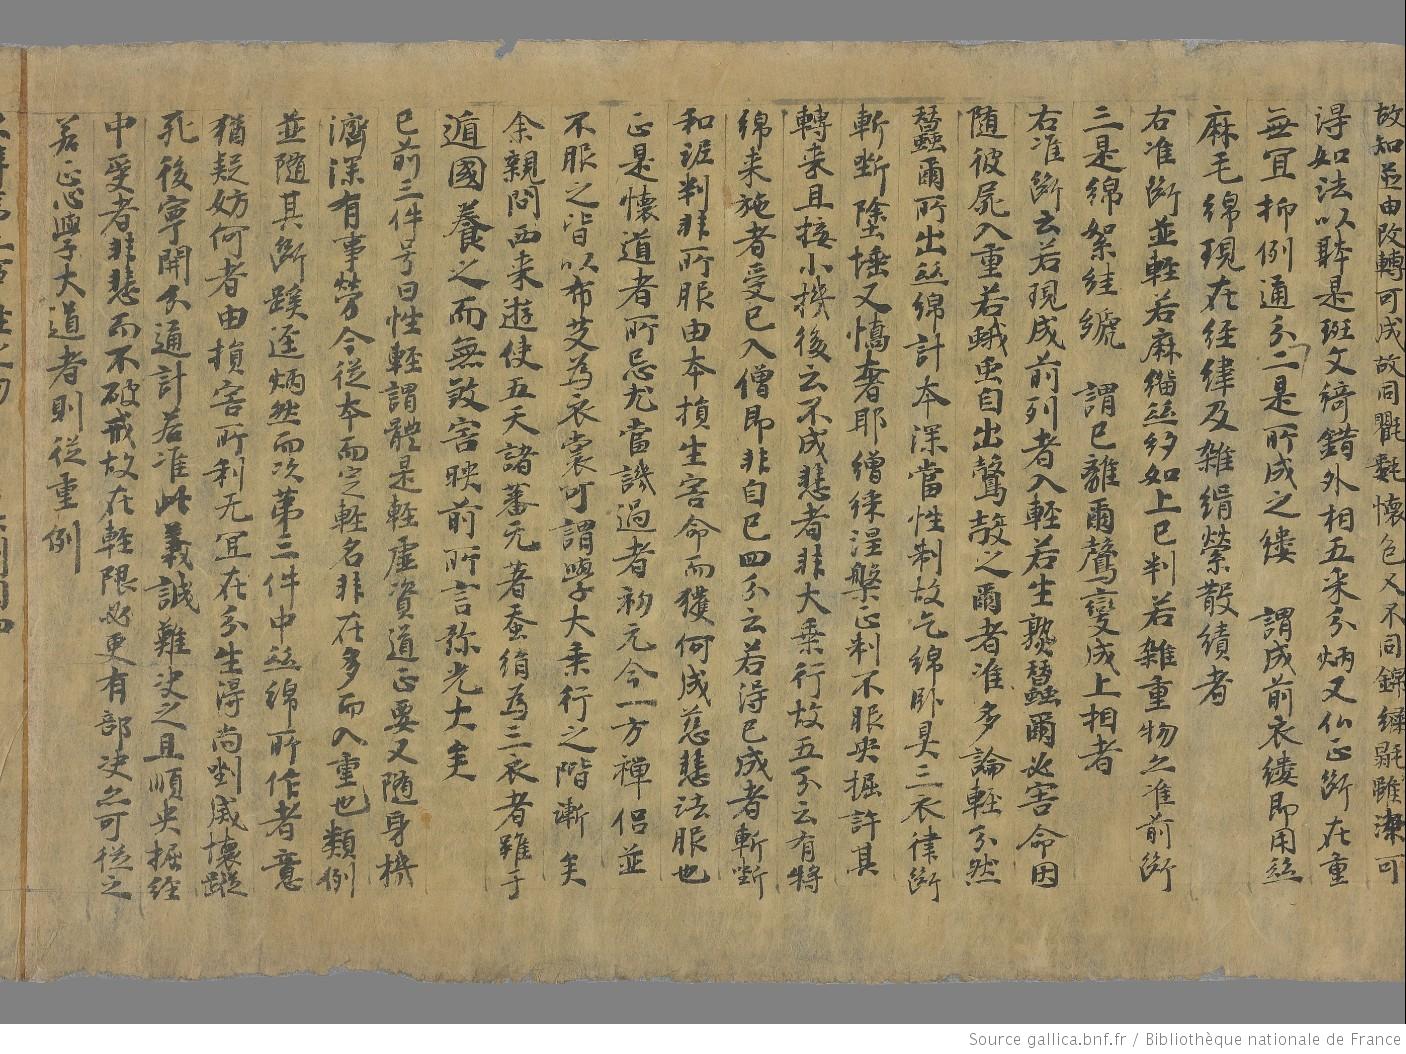 故知並由改轉可成故同氍𣰽懷色又不同錦繡㲪雖潔可
得如法以幹是班文綺錯外相五采分炳又仏正斷在重
無宜抑例通分二是所成之縷　謂成前衣縷即用絲
麻毛綿現在經緯及雜絹縈散績者
右准斷並輕若麻緇絲紗如上已判若雜重物亦准前斷
三是綿絮絓䌫　謂已離爾蠒變成上相者
右准斷云若現成前列者入輕若生熟蠶爾必害命因
随彼屍入重若蛾虫自出蠒㲉之爾者准多論輕分然
蠶爾所出絲綿計本深當性制故乞綿臥具三衣律斷
斬斷塗埵又憍奢耶繒律涅槃正制不服央掘許其
轉来且接小機後云不成悲者非大乗行故五分云有將
綿来施者受已入僧即非自已四分云若得已成者斬斷
和埿判非所服由本損生害命而獲何成慈悲法服也
正是懷道者所忌尤當譏過者初元今一方禪侶並
不服之皆以布艾為衣裳可謂學大乗行之階漸矣
余親問西来遊使五天諸蕃无著蚕絹為三衣者雖于
遁國養之而無敢害映前所言弥光大矣
已前三件号曰性輕謂體是輕虛資道正要又隨身機
濟深有事勞今從本而定輕名非在多而入重也類例
並隨其斷蹊逕炳然而次第三件中絲綿所作者意
猶疑妨何者由損害所利无宜在分生得尚剉威懷蹤
死後寧開分通計若准此義誠難决之且順央掘經
中受者非悲而不破戒故在輕限必更有部决亦可從之
若正心學大道者則從重例